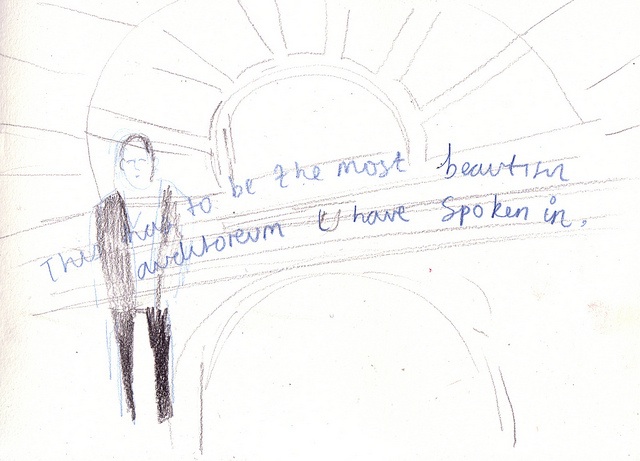 This has to be the most beautiful
auditoreum I have Spoken in.